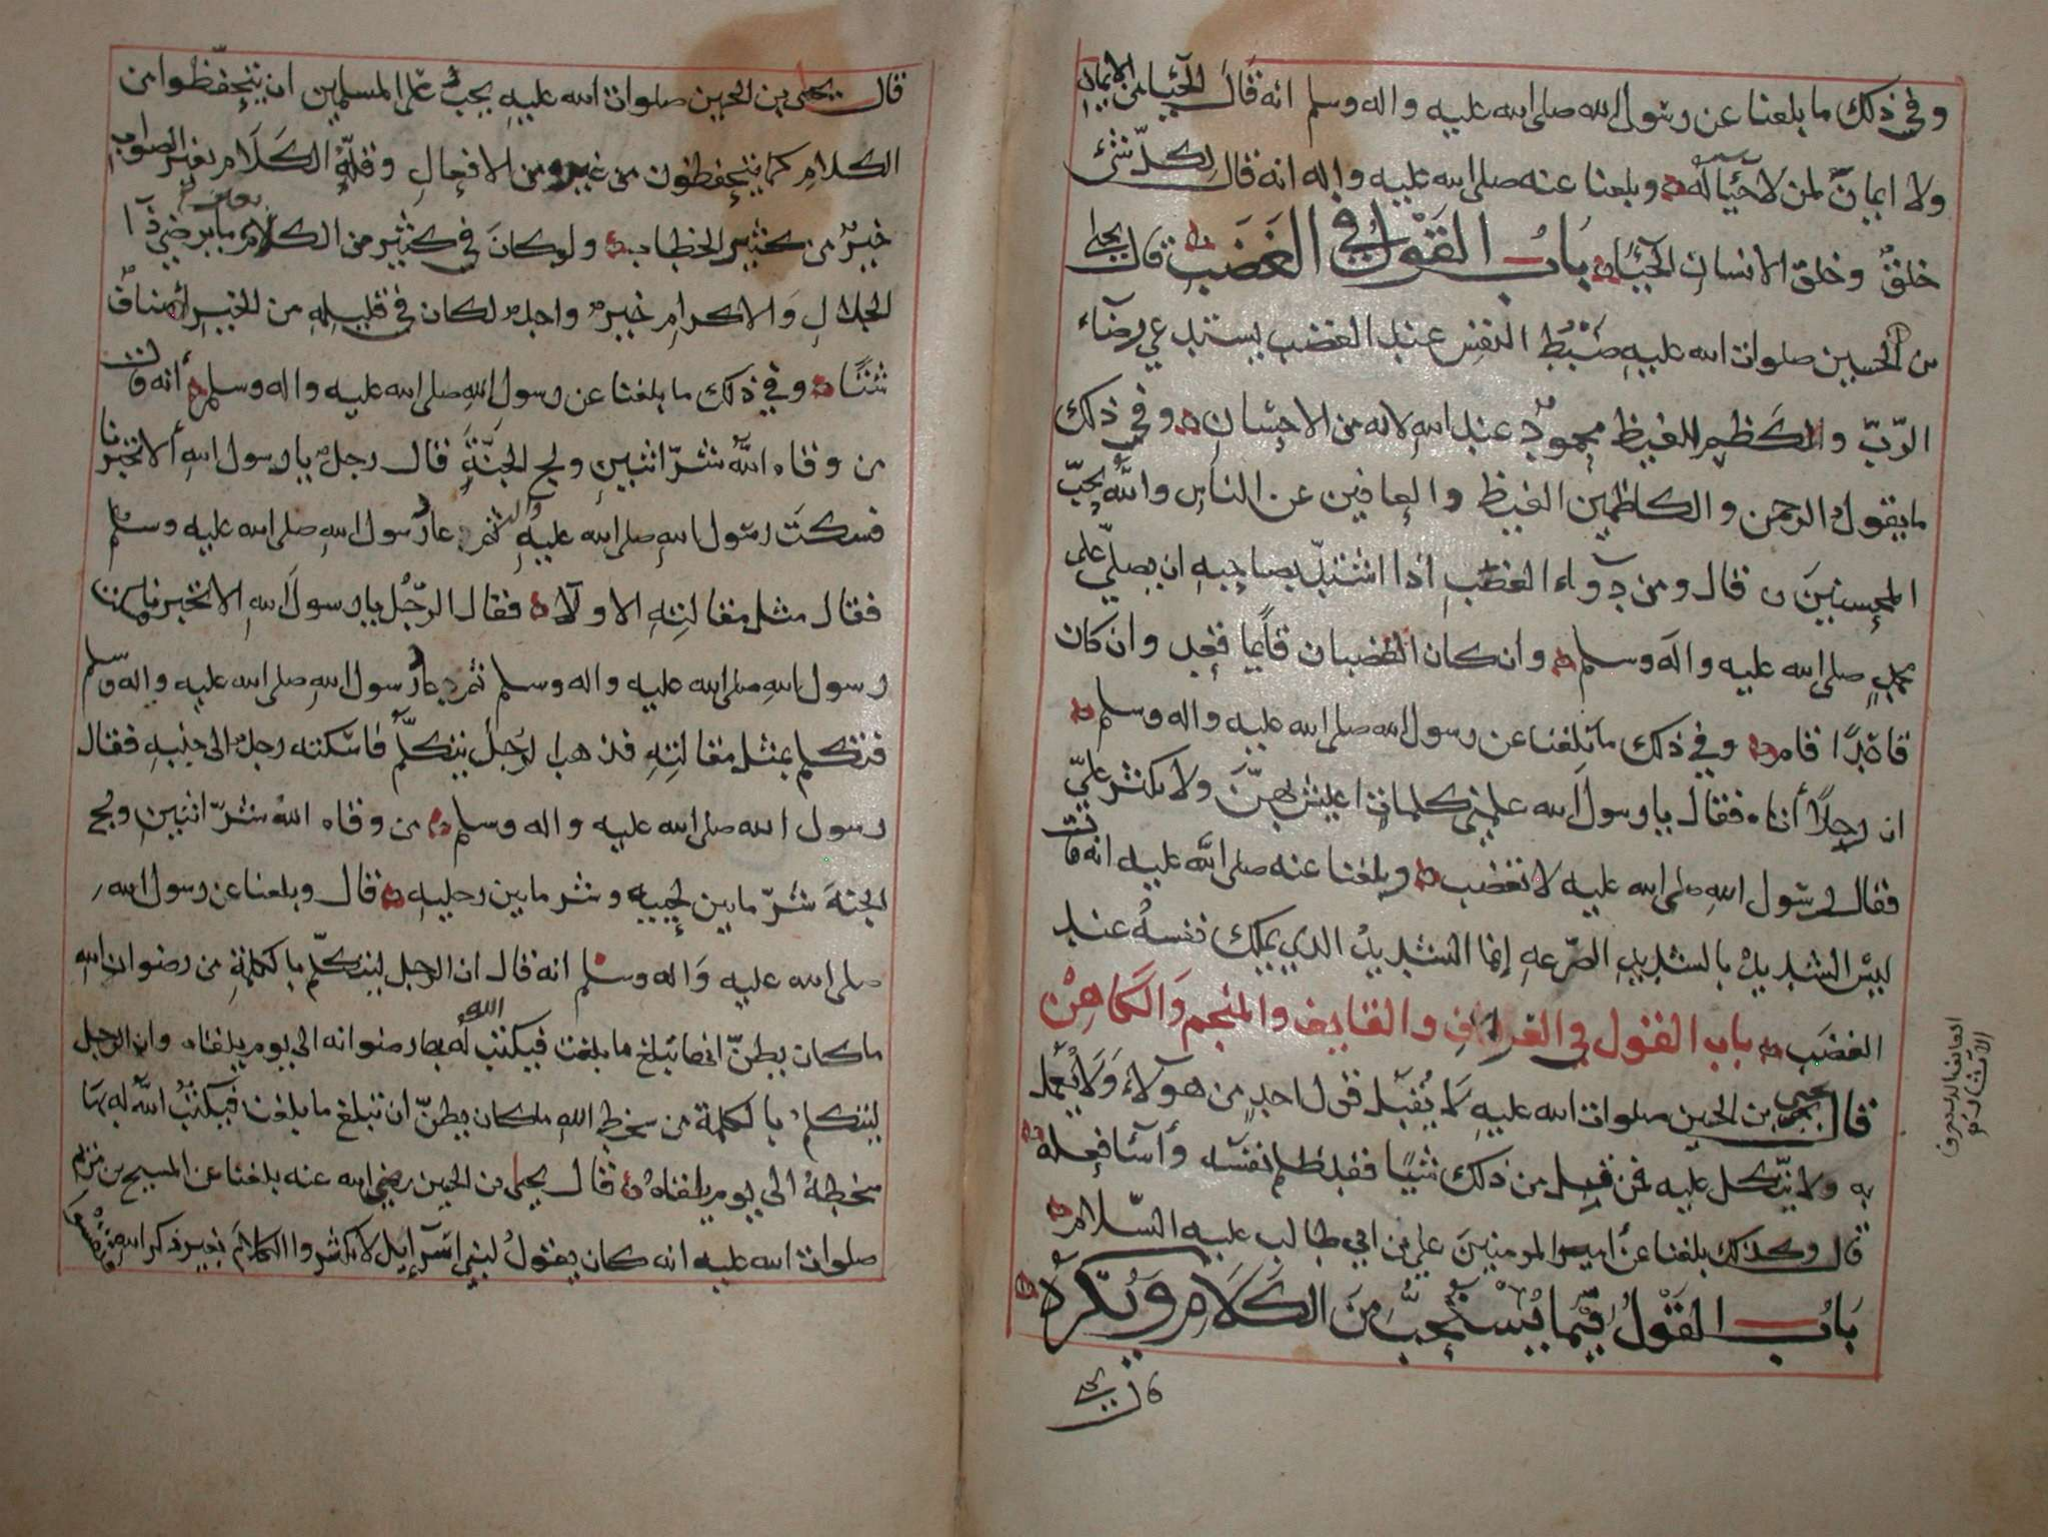 وفي ذلك ما بلغنا عن رسول الله صلى الله عليه واله وسلم انه قال الحيا من الايمان
ولا ايمان لمن لا حيا له وبلغنا عنه صلى الله عليه واله انه قال لكل شئ
خلق وخلق الانسان الحيا باب القول في الغضب قال يحيى
بن الحسين صلوات الله عليه ضبط النفس عند الغضب يستدعي رضاء
الرب والكظم للغيظ محمود عند الله لانه من الاحسان وفي ذلك
ما يقول الرحمن والكاظمين الغيظ والعافين عن الناس والله يحب
المحسنين قال ومن دواء الغضب اذا اشتد بصاحبه ان يصلي على
محمد صلى الله عليه واله وسلم وان كان الغضبان قايما فقعد وان كان
قاعدا قام وفي ذلك ما بلغنا عن رسول الله صلى الله عليه واله وسلم
ان رجلا أتاه فقال يا رسول الله علمني كلمات اعيش بهن ولا يكثر علي
فقال رسول الله صلى الله عليه لا تغضب وبلغنا عنه صلى الله عليه انه قال
ليس الشديد بالشديد الصرعه إنما الشديد الذي يملك نفسه عند
الغضب باب القول في العراف والقايف والمنجم والكاهن
قال يحيى بن الحسين صلوات الله عليه لا يقبل قول احد من هولاء ولا يعمل
به ولا يتكل عليه فمن قبل من ذلك شيا فقد ظلم نفسه وأسا فعله
قال وكذلك بلغنا عن أمير المومنين علي بن ابي طالب عليه السلام
باب القول فيما يستحب من الكلام ويكره
قال يحيى
العايف الذي يعرف
الآثار
قال يحيى بن الحسين صلوات الله عليه يجب على المسلمين ان يتحفظوا من
الكلام كما يتحفظون من غيره من الافعال وقلة الكلام بغير الصواب
خير من كثير الخطاب ولو كان في كثير من الكلام ما يرضي ذا
الجلال والاكرام خير واحد لكان في قليله من الخير أصناف
شتا وفي ذلك ما بلغنا عن رسول الله صلى الله عليه واله وسلم أنه قال
من وقاه الله شر اثنين ولج الجنة فقال رجل يا رسول الله ألا تخبرنا
فسكت رسول الله صلى الله عليه واله ثم عاد رسول الله صلى الله عليه وسلم
فقال مثل مقالته الاولا فقال الرجل يا رسول الله الا تخبرنا فسكت
رسول الله صلى الله عليه واله وسلم ثم عاد رسول الله صلى الله عليه واله وسلم
فتكلم بمثل مقالته فذهب الرجل يتكلم فاسكته رجل الى جنبه فقال
رسول الله صلى الله عليه واله وسلم من وقاه الله شر اثنين ولج
الجنة شر ما بين لحييه وشر ما بين رجليه قال وبلغنا عن رسول الله
صلى الله عليه واله وسلم انه قال ان الرجل ليتكلم بالكلمة من رضوان الله
ما كان يظن انها تبلغ ما بلغت فيكتب الله له بها رضوانه الى يوم يلقاه وان الرجل
ليتكلم بالكلمة من سخط الله ما كان يظن ان تبلغ ما بلغت فيكتب الله له بها
سخطه الى يوم يلقاه قال يحيى بن الحسين رضي الله عنه بلغنا عن المسيح بن مريم
صلوات الله عليه انه كان يقول لبني اسرآيل لا تكثروا الكلام بغير ذكر الله